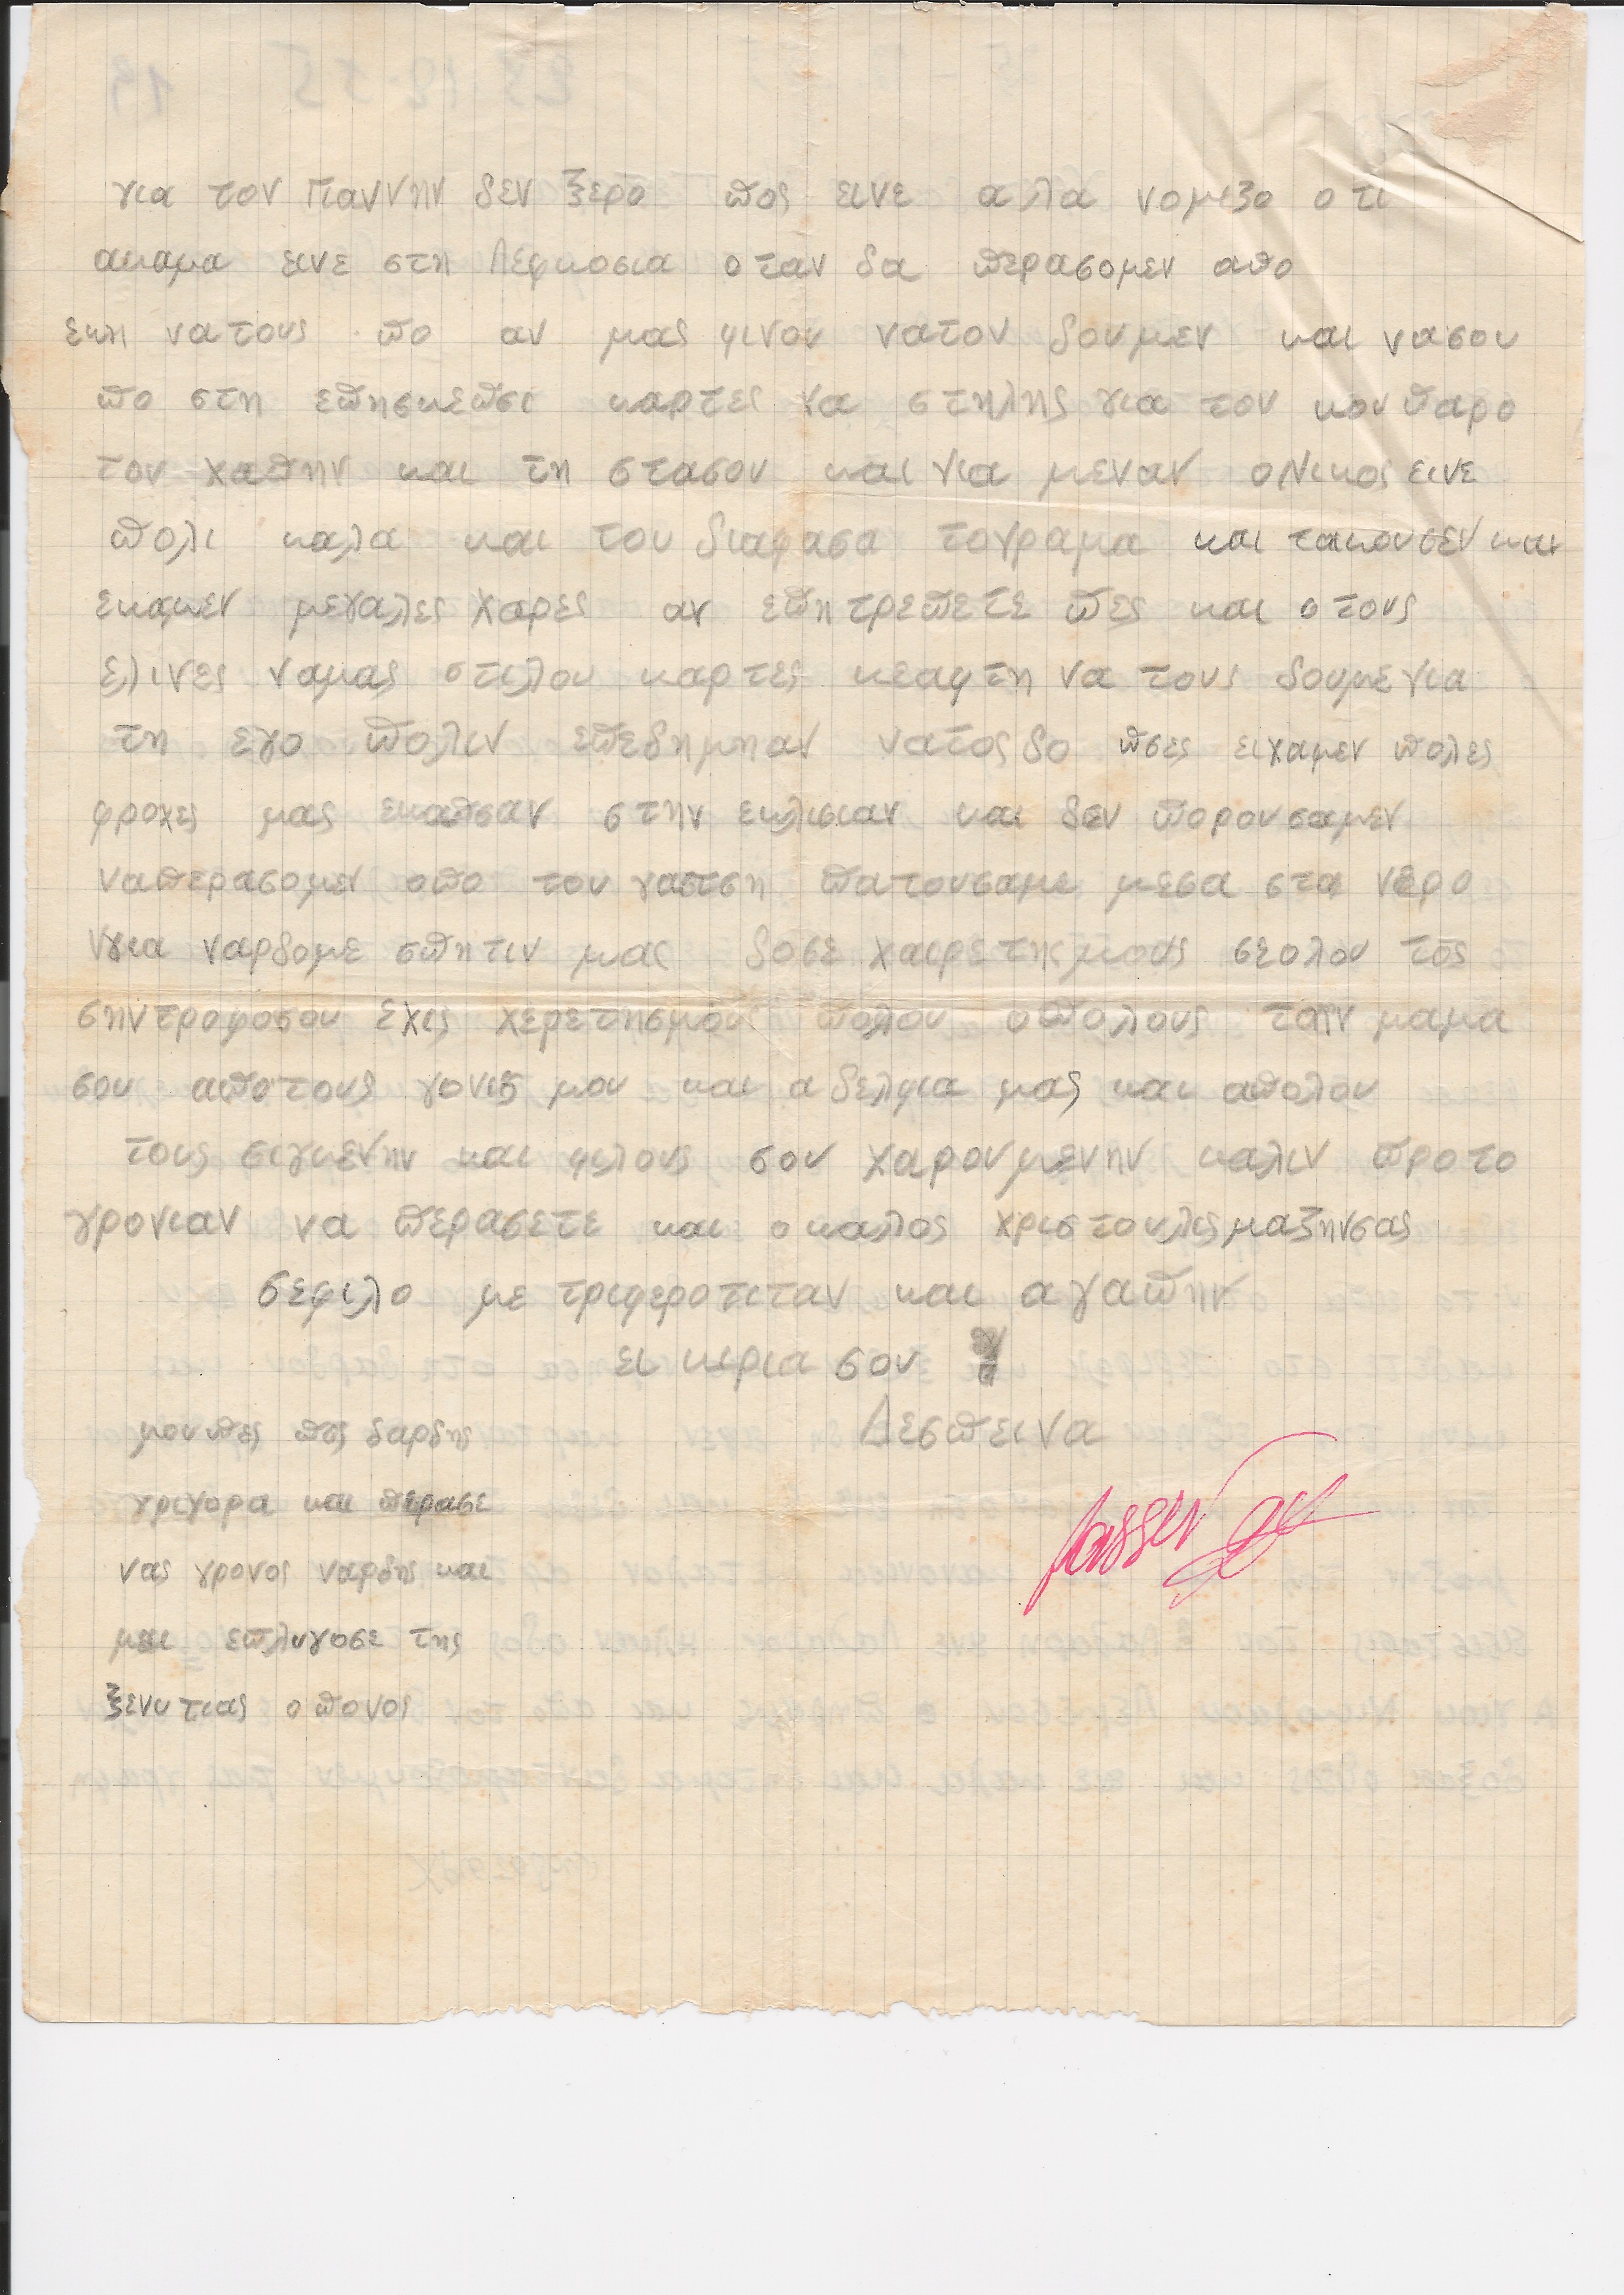 για τον Γιαννην δεν ξερο πος εινε αλλα νομιζο οτι
ακαμα εινε στη Λεφκοσια οταν δα περασομεν απο
εκη νατους πο αν μας φινου νατον δουμεν και νασου
πο στη επησκεπσι καρτες να στηλης για τον κουπαρο
τον χαπην και τη στασου και για μεναν ο Νικος εινε
πολι καλα και του διαφασα τογραμα και τακουσεν και
εκαμεν μεγαλες χαρες αν επητρεπετε πες και στους
ελινες ναμας στιλου καρτες κεαφτη να τους δουμε για
τη εγο πολιν επεδημησαν νατος δο πσες ειχαμεν πολες
φροχες μας εκαπσαν στην εκλισιαν και δεν πορουσαμεν
ναπερασομεν απο του πατουσαμε μεσα στα νερο
για ναρδομε σπητιν μας δοσε χαιρετησμους σεολου τος
σηντροφοσου εχις χερετησμους πολου απολους την μαμα
σου αποτους γονις μου και αδελφια μας και απολου
τους σιγκενην και φιλους σου χαρουμενην καλιν προτο
χρονιαν να περασετε και ο καλος χριστουλις μαζηνσας
σεφιλο με τριφεροτιταν και αγαπην
ει κιρια σου
Δεσπεινα
μουπες πος δαρδης
γριγορα και περασε
νας χρονος ναρδης και
μει επλιγοσε της
ξενυτιας ο πονος